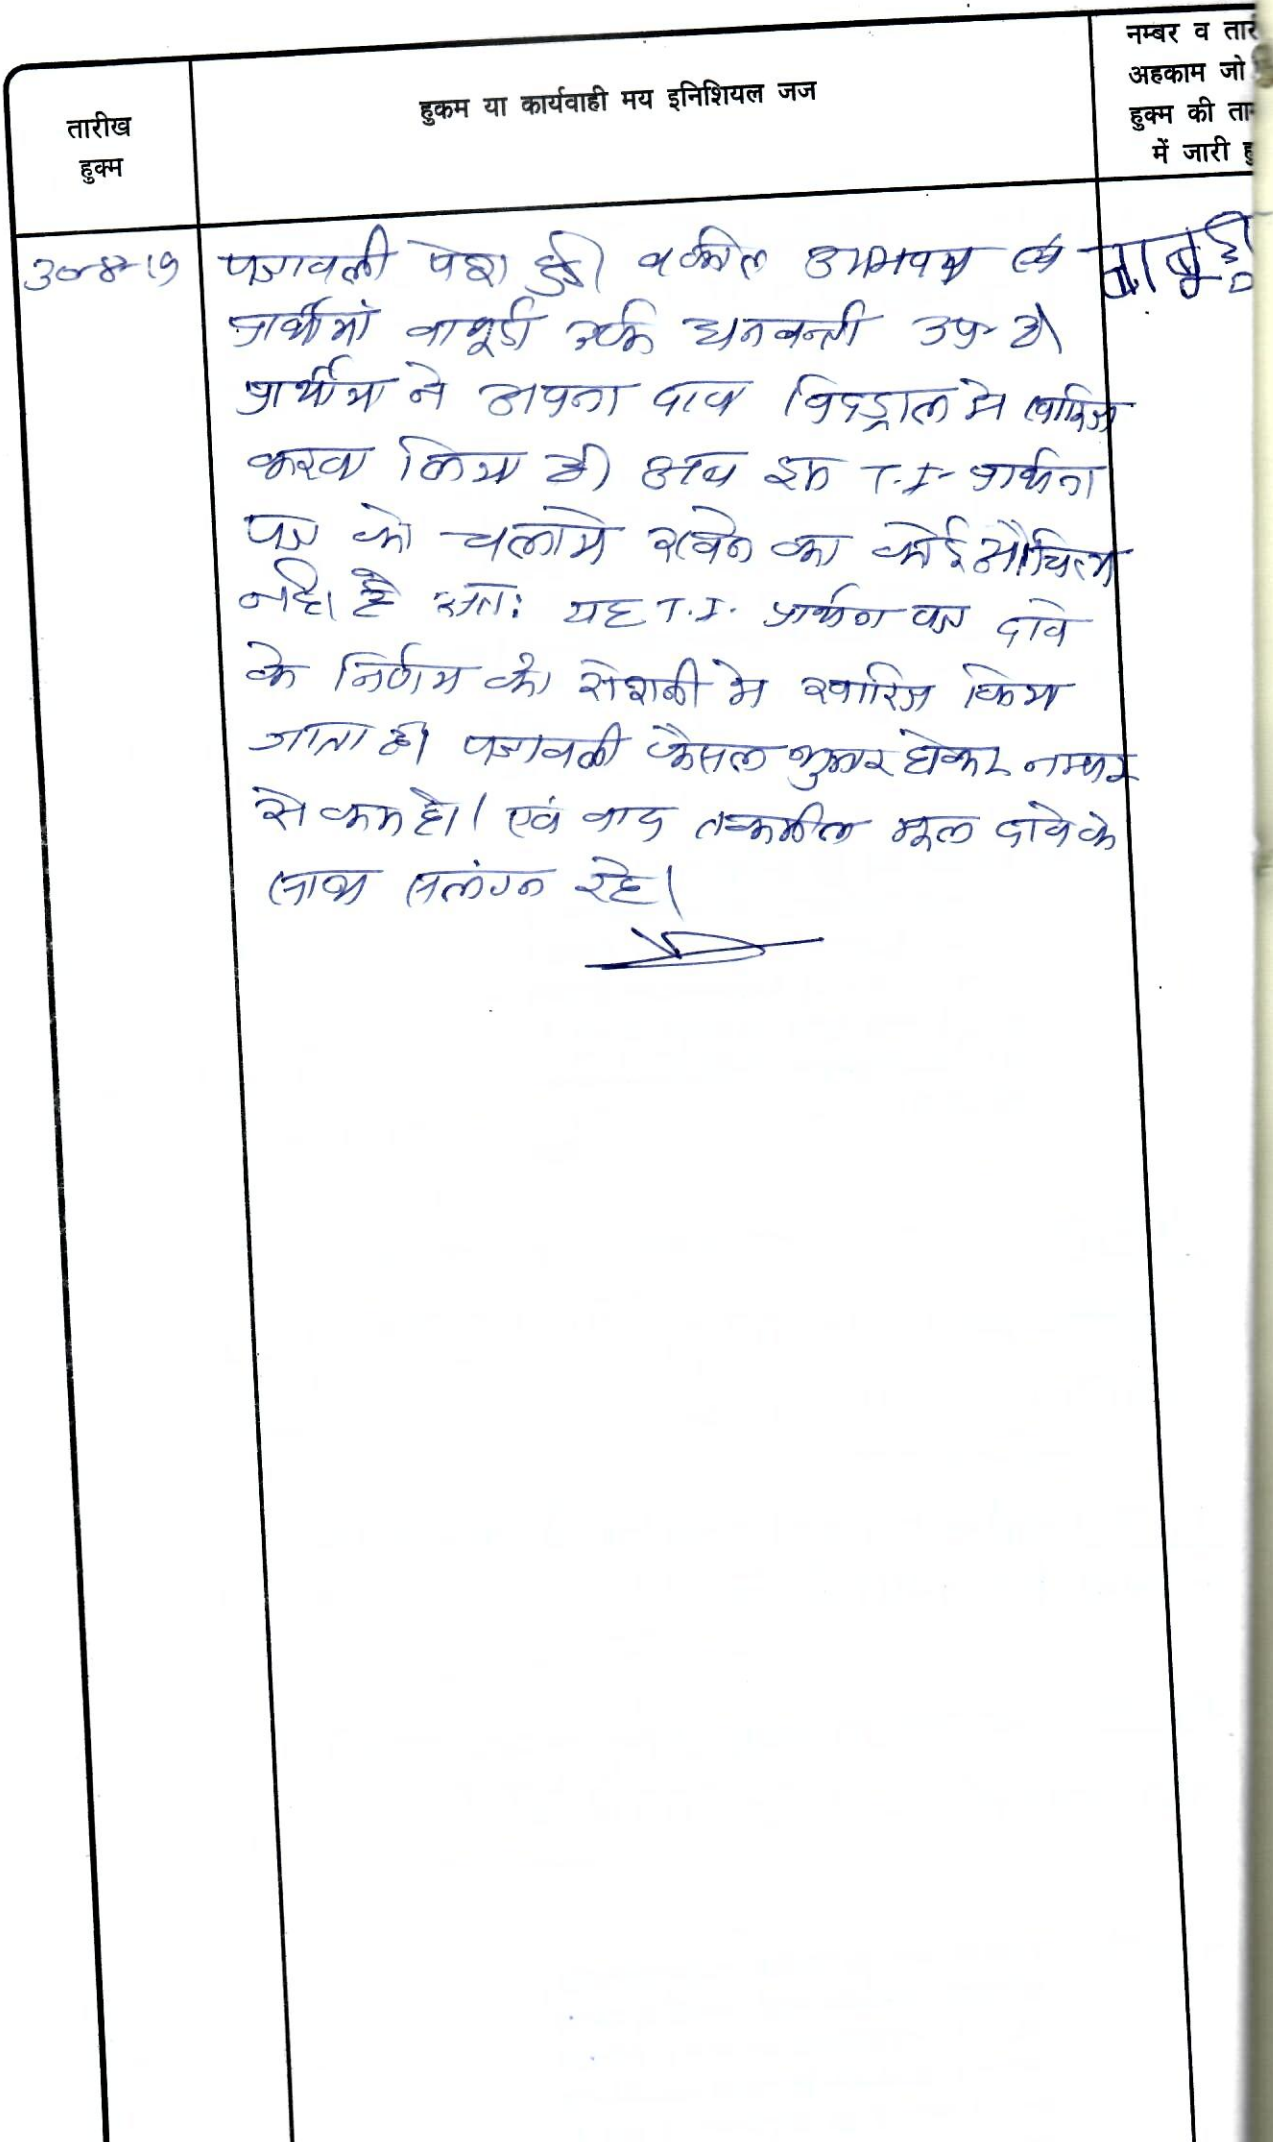 तारीख
हुक्म
हुकम या कार्यवाही मय इनिशियल जज
नम्बर व तार
अहकाम जो
हुक्म की ता
में जारी हु
30-8-19
पत्रावली पेश हुई। वकील उभयपक्ष व
प्रार्थीया उर्फ धनवन्ती उप० है।
प्रार्थीया ने अपना दावा विदड्राल मे खारिज
करवा लिया है। अब इस T.I. प्रार्थना
पत्र को चलाये रखने का कोई औचित्य
नही है अतः यह T.I. प्रार्थना पत्र दावे
के निर्णय की रोशनी मे खारिज किया
जाता है। पत्रावली फैसल शुमार होकर नम्बर
से कम हो। एवं बाद तकमील मूल दावे के
साथ सलंग्न रहे।